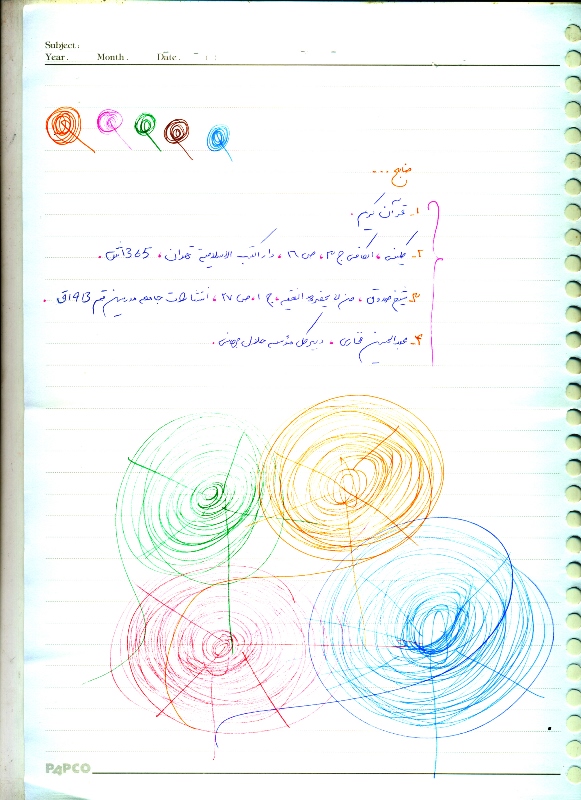 Subject:
Year. Month. Date.
منابع ...
۱ـ قرآن کریم.
۲ـ کلینی، الکافی ج ۳، ص ۲۶، دارالکتب الاسلامیة تهران، 1365ش.
۳ـ شیخ صدوق، من لا یحضره الفقیه، ج ۱، ص ۲۷، انتشارات جامعه مدرسین قم ۱۴13ق.
۴ـ عبدالحسین فخاری، دبیرکل مؤسسه حلال جهانی.
PAPCO